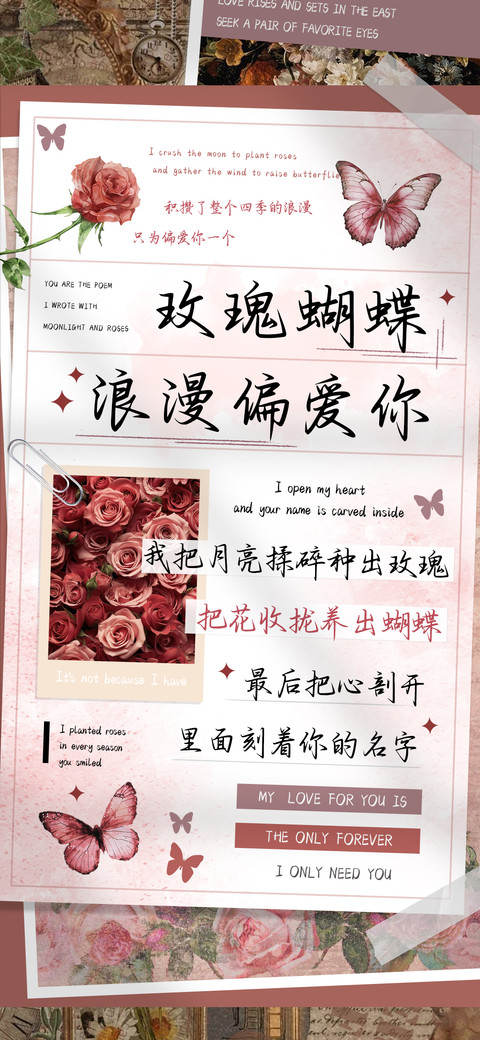 LOVE RISES AND SETS IN THE EAST
SEEK A PAIR OF FAVORITE EYES
I crush the moon to plant roses
and gather the wind to raise butterflie
积攒了整个四季的浪漫
只为偏爱你一个
YOU ARE THE POEM
I WROTE WITH
MOONLIGHT AND ROSES
玫瑰蝴蝶
浪漫偏爱你
I open my heart
and your name is carved inside
我把月亮揉碎种出玫瑰
把花收拢养出蝴蝶
It's not because I have
最后把心剖开
里面刻着你的名字
I planted roses
in every season
you smiled
MY LOVE FOR YOU IS
THE ONLY FOREVER
I ONLY NEED YOU